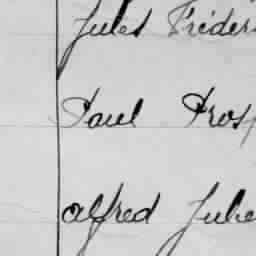 Jules Fréder
Paul Prosp
Alfred Julie